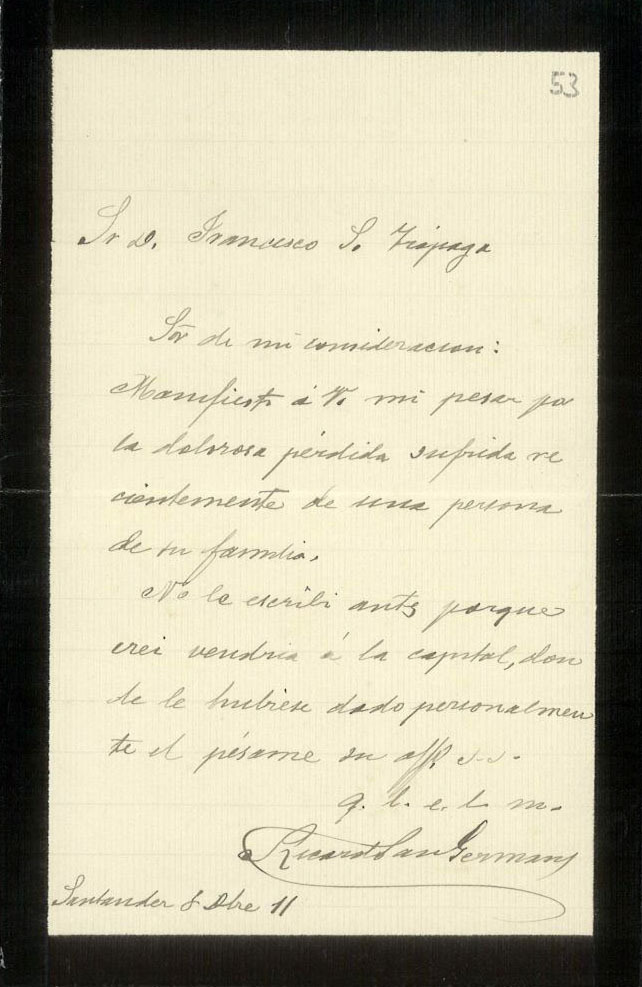 53
Sr D. Francisco S. Trápaga
Sor de mi consideracion:
Manifiesto á V. mi pesar por
la dolorosa pérdida sufrida re
cientemente de una persona
de su familia.
No le escribi antes porque
crei vendria á la capital, don
de le hubiese dado personalmen
te el pésame su affº s.s.
q. b. e. l. m.
Ricardo San German
Santander 8 Dbre 11